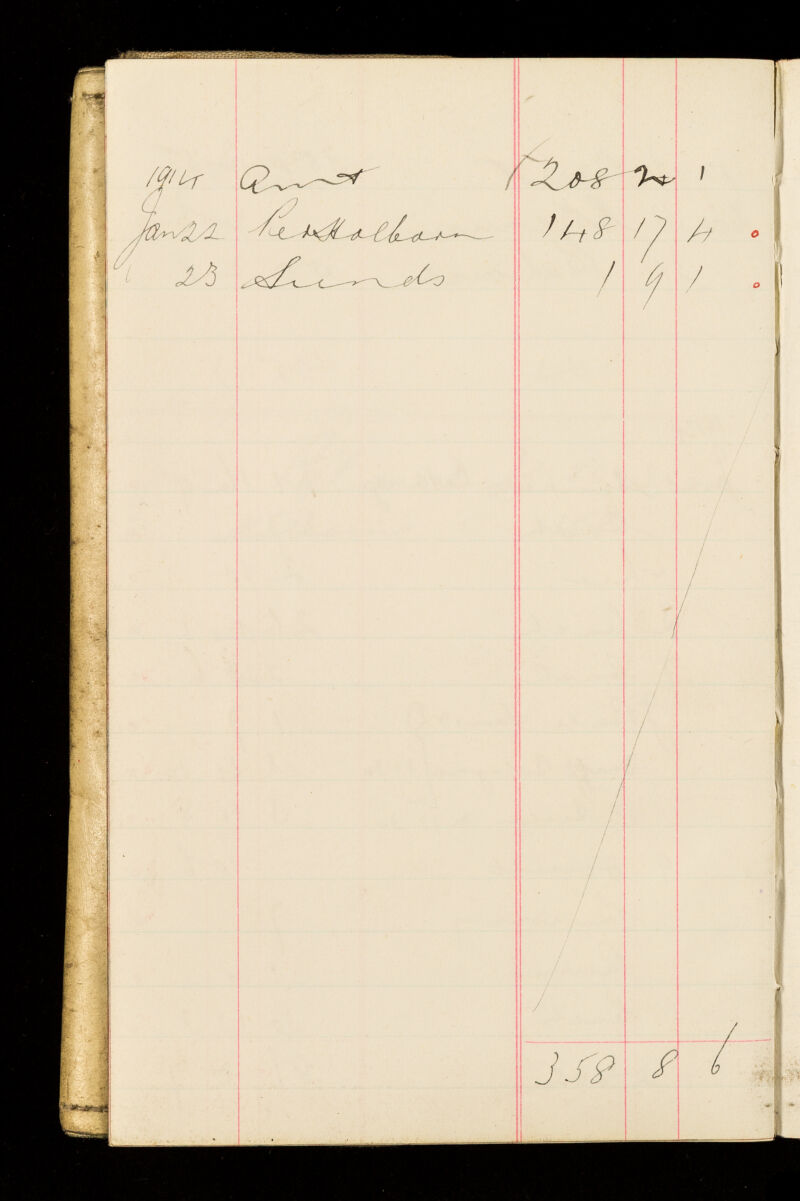 1914 Amt £208 2 1
Jan 22 Per Holborn 148 17 4
23 Sunds 1 9 1
358 8 6